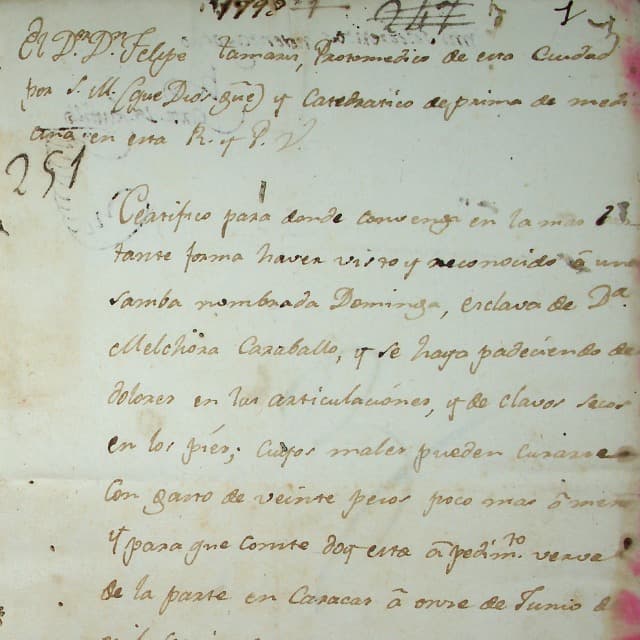 1793 247 1
El Dor. Dn. Felipe Tamariz, Protomedico de esta Ciudad
por S. M. (que Dios gũe) y Catedratico de prima de medi-
cina en esta R. y P. V.
251
Certifico para donde convenga en la mas
tante forma haver visto y reconocido â una
samba nombrada Dominga, esclava de Da.
Melchôra Caraballo, y se haya padeciendo de
dolores en las articulaciónes, y de clavos secos
en los píes; cuyos males pueden curarse
con gasto de veinte pesos poco mas ô men
y para que conste doy esta â pedimto. verval
de la parte en Caracas â onze de Junio de